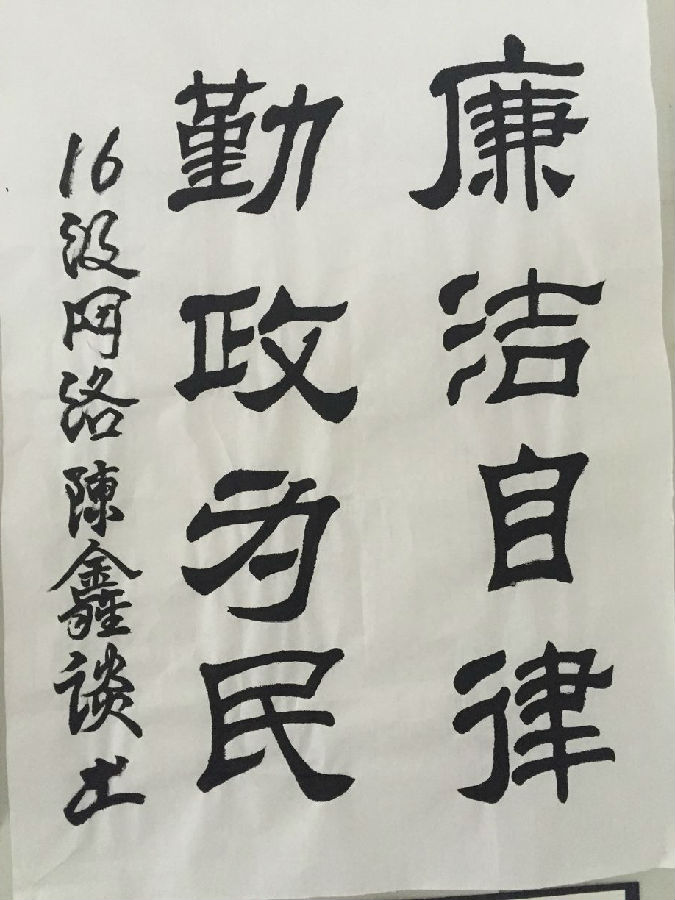 廉洁自律
勤政为民
16级网络陈鑫谈书